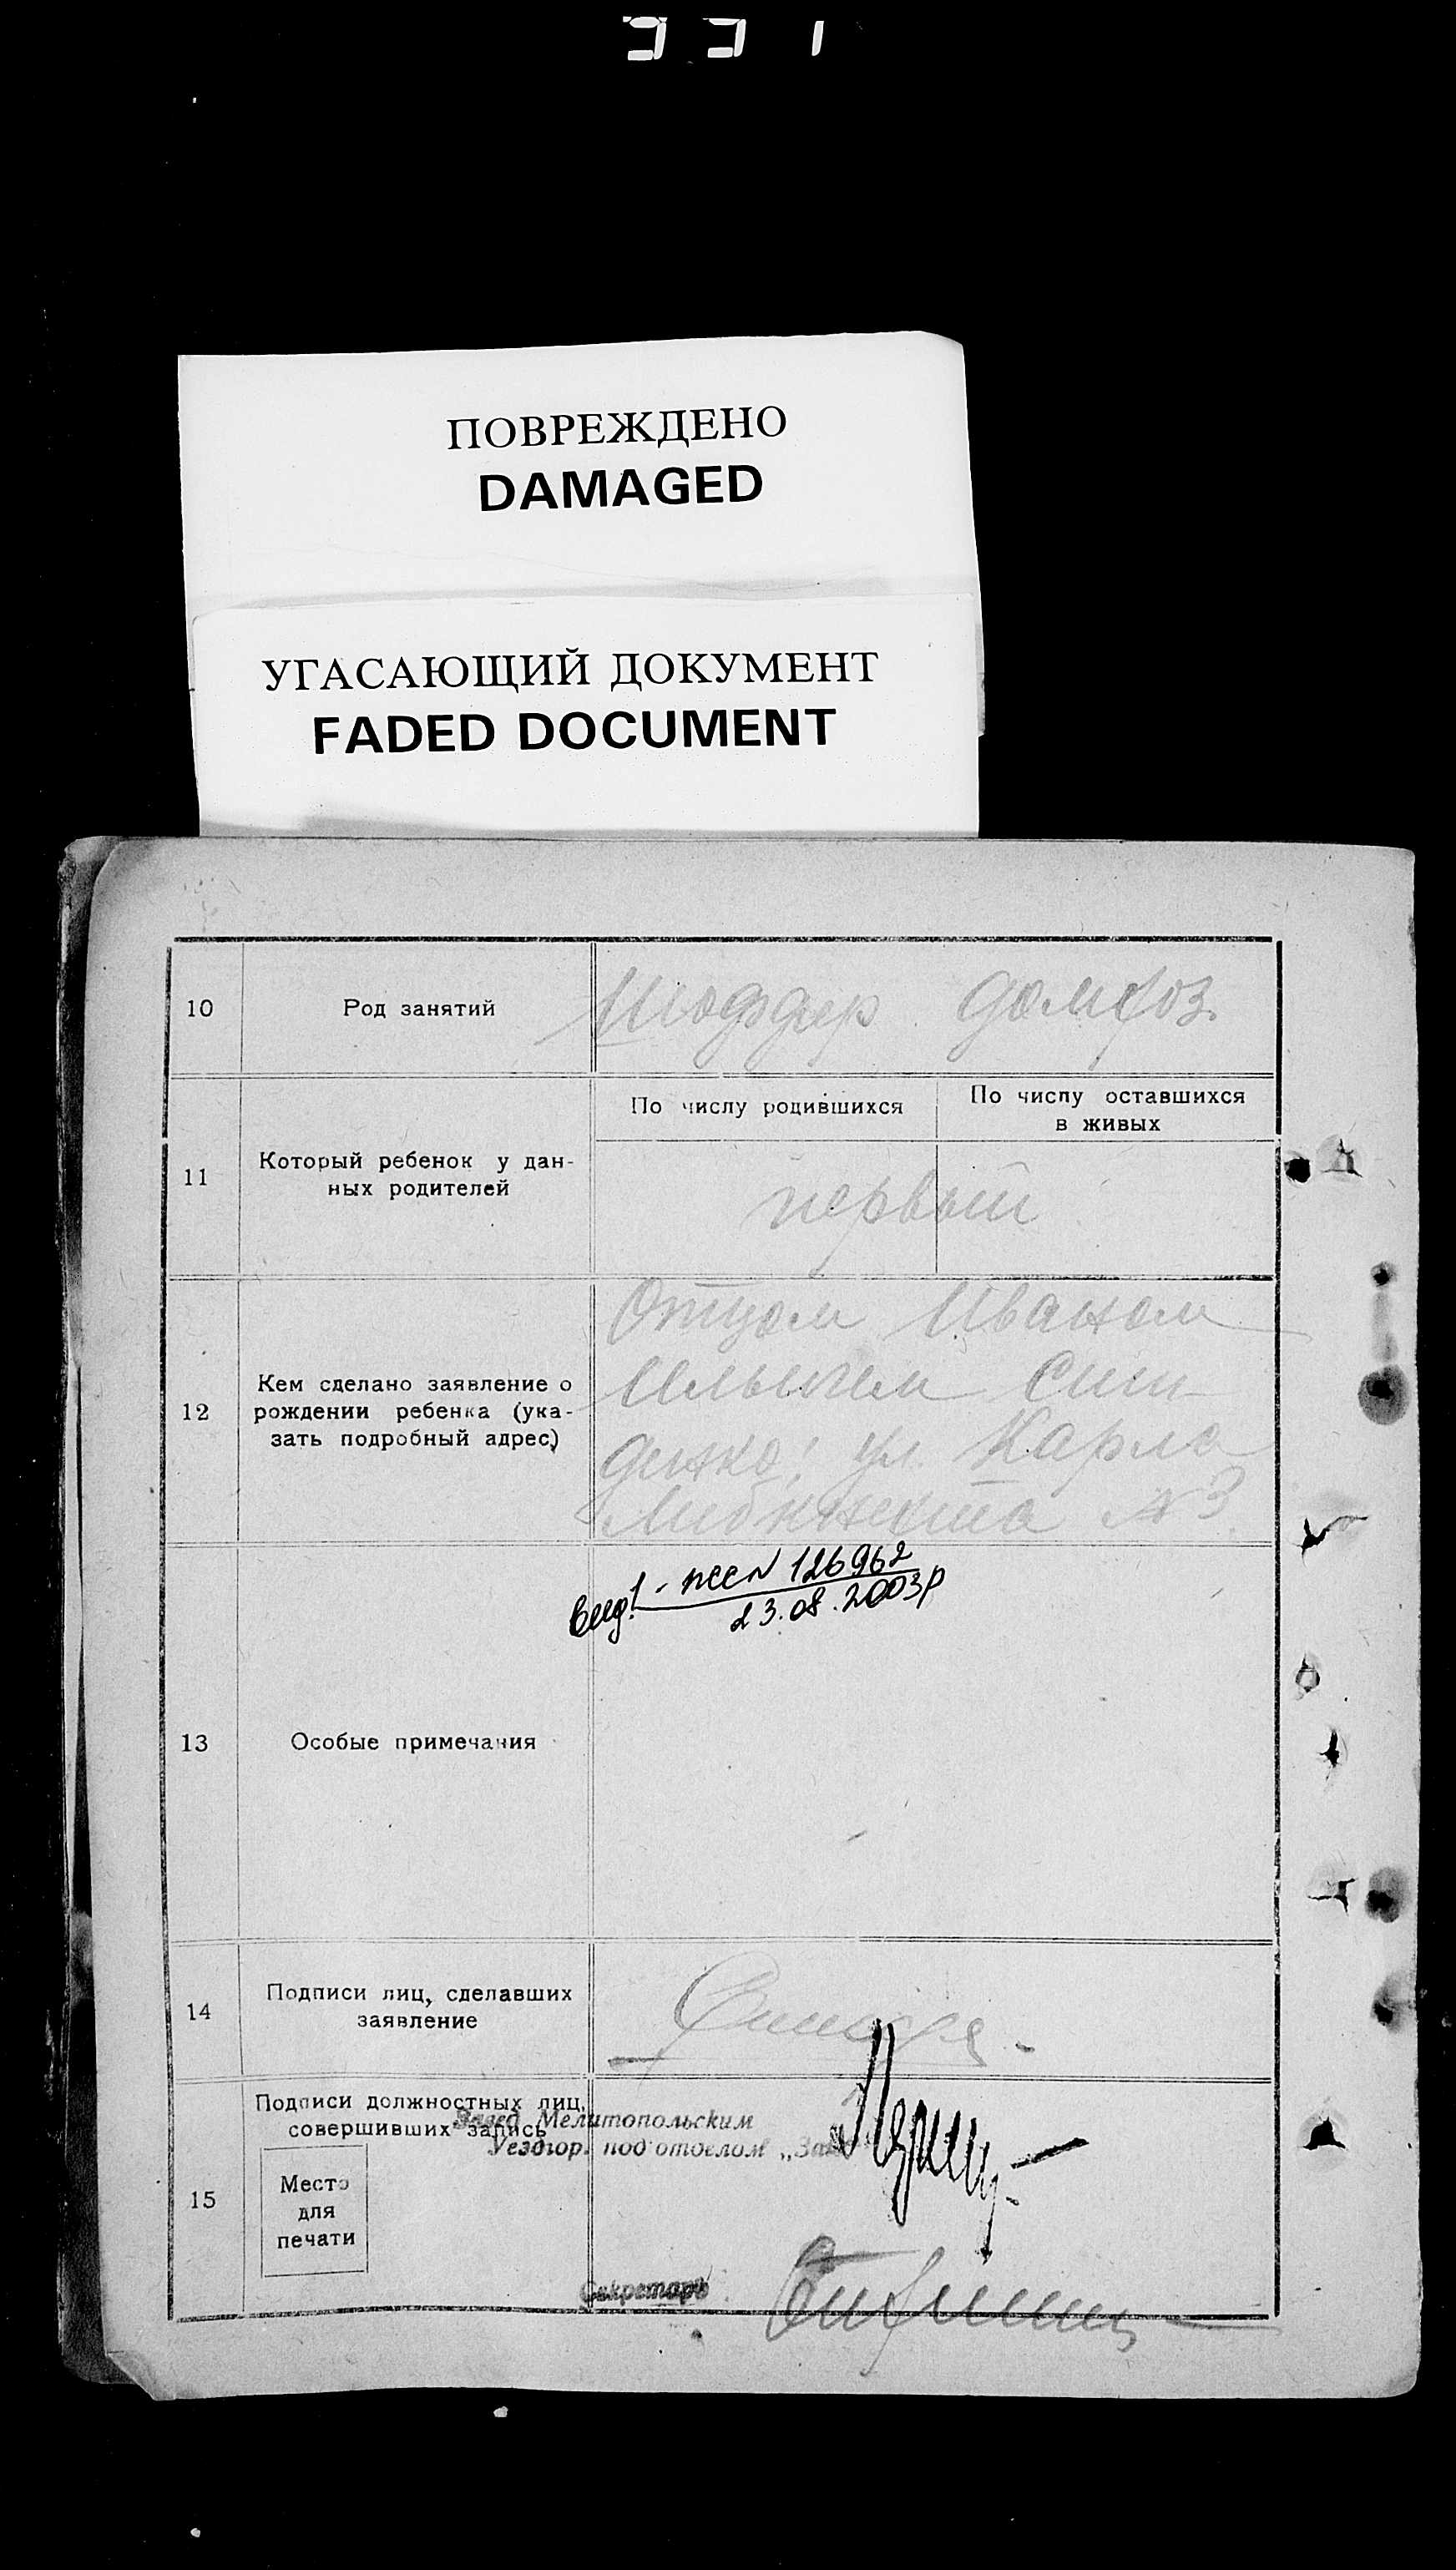 ПОВРЕЖДЕНО
DAMAGED
УГАСАЮЩИЙ ДОКУМЕНТ
FADED DOCUMENT
10 Род занятий Шоффер домхоз.
11 Который ребенок у дан-
ных родителей
По числу родившихся
По числу оставшихся
в живых
первый
12 Кем сделано заявление о
рождении ребенка (ука-
зать подробный адрес)
Отцом Иваном
Ильичем
ул. Карла
Либкнехта №3
13 Особые примечания
126962
23.08.2003р
14 Подписи лиц, сделавших
заявление
15 Подписи должностных лиц,
совершивших запись
Завед Мелитопольским
Уездгор. подотделом „
Место
для
печати
Секретарь